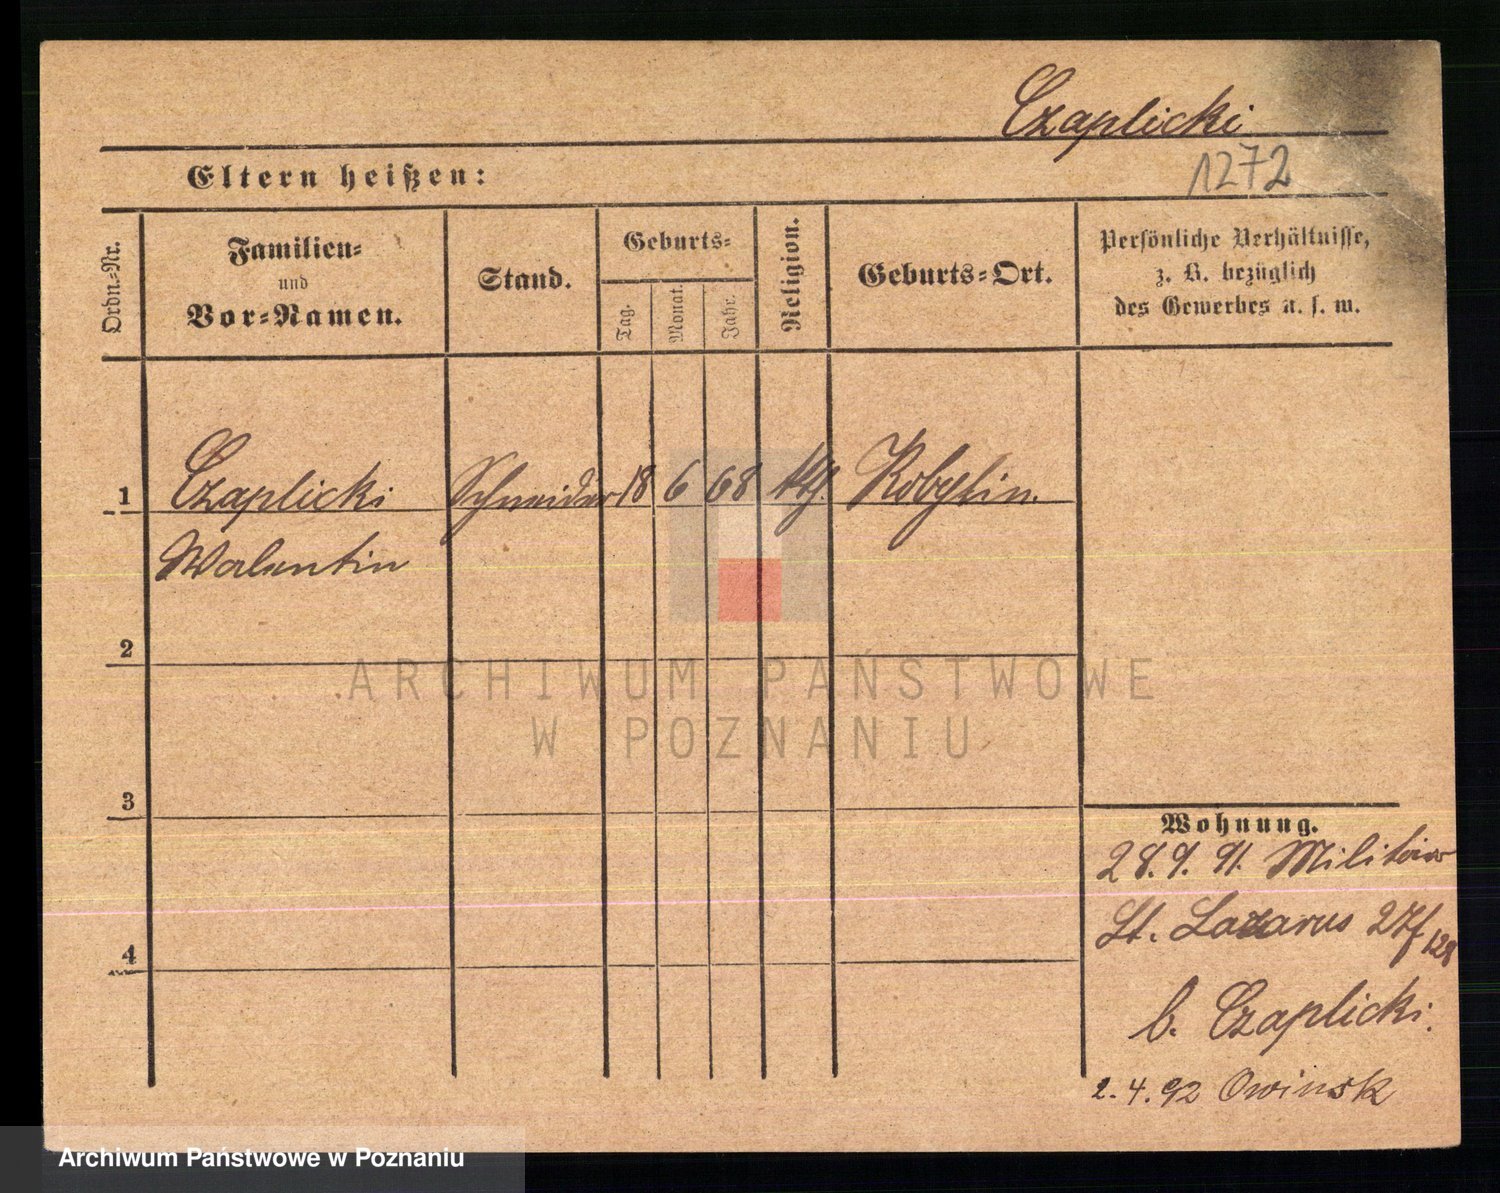 Czaplicki
1272
Eltern heißen:
Ordn.-Nr.
Familien-
und
Vor-Namen.
Stand.
Geburts-
Tag.
Monat.
Jahr.
Religion.
Geburts-Ort.
Persönliche Verhältnisse,
z. B. bezüglich
des Gewerbes u. s. w.
1
Czaplicki
Schneider
18
6
68
kth.
Kobylin.
Walentin
2
ARCHIWUM PAŃSTWOWE
W POZNANIU
3
Wohnung.
28. 9. 91. Militär
St. Lazarus 27f 128
4
b. Czaplicki.
2. 4. 92 Owinsk
Archiwum Państwowe w Poznaniu